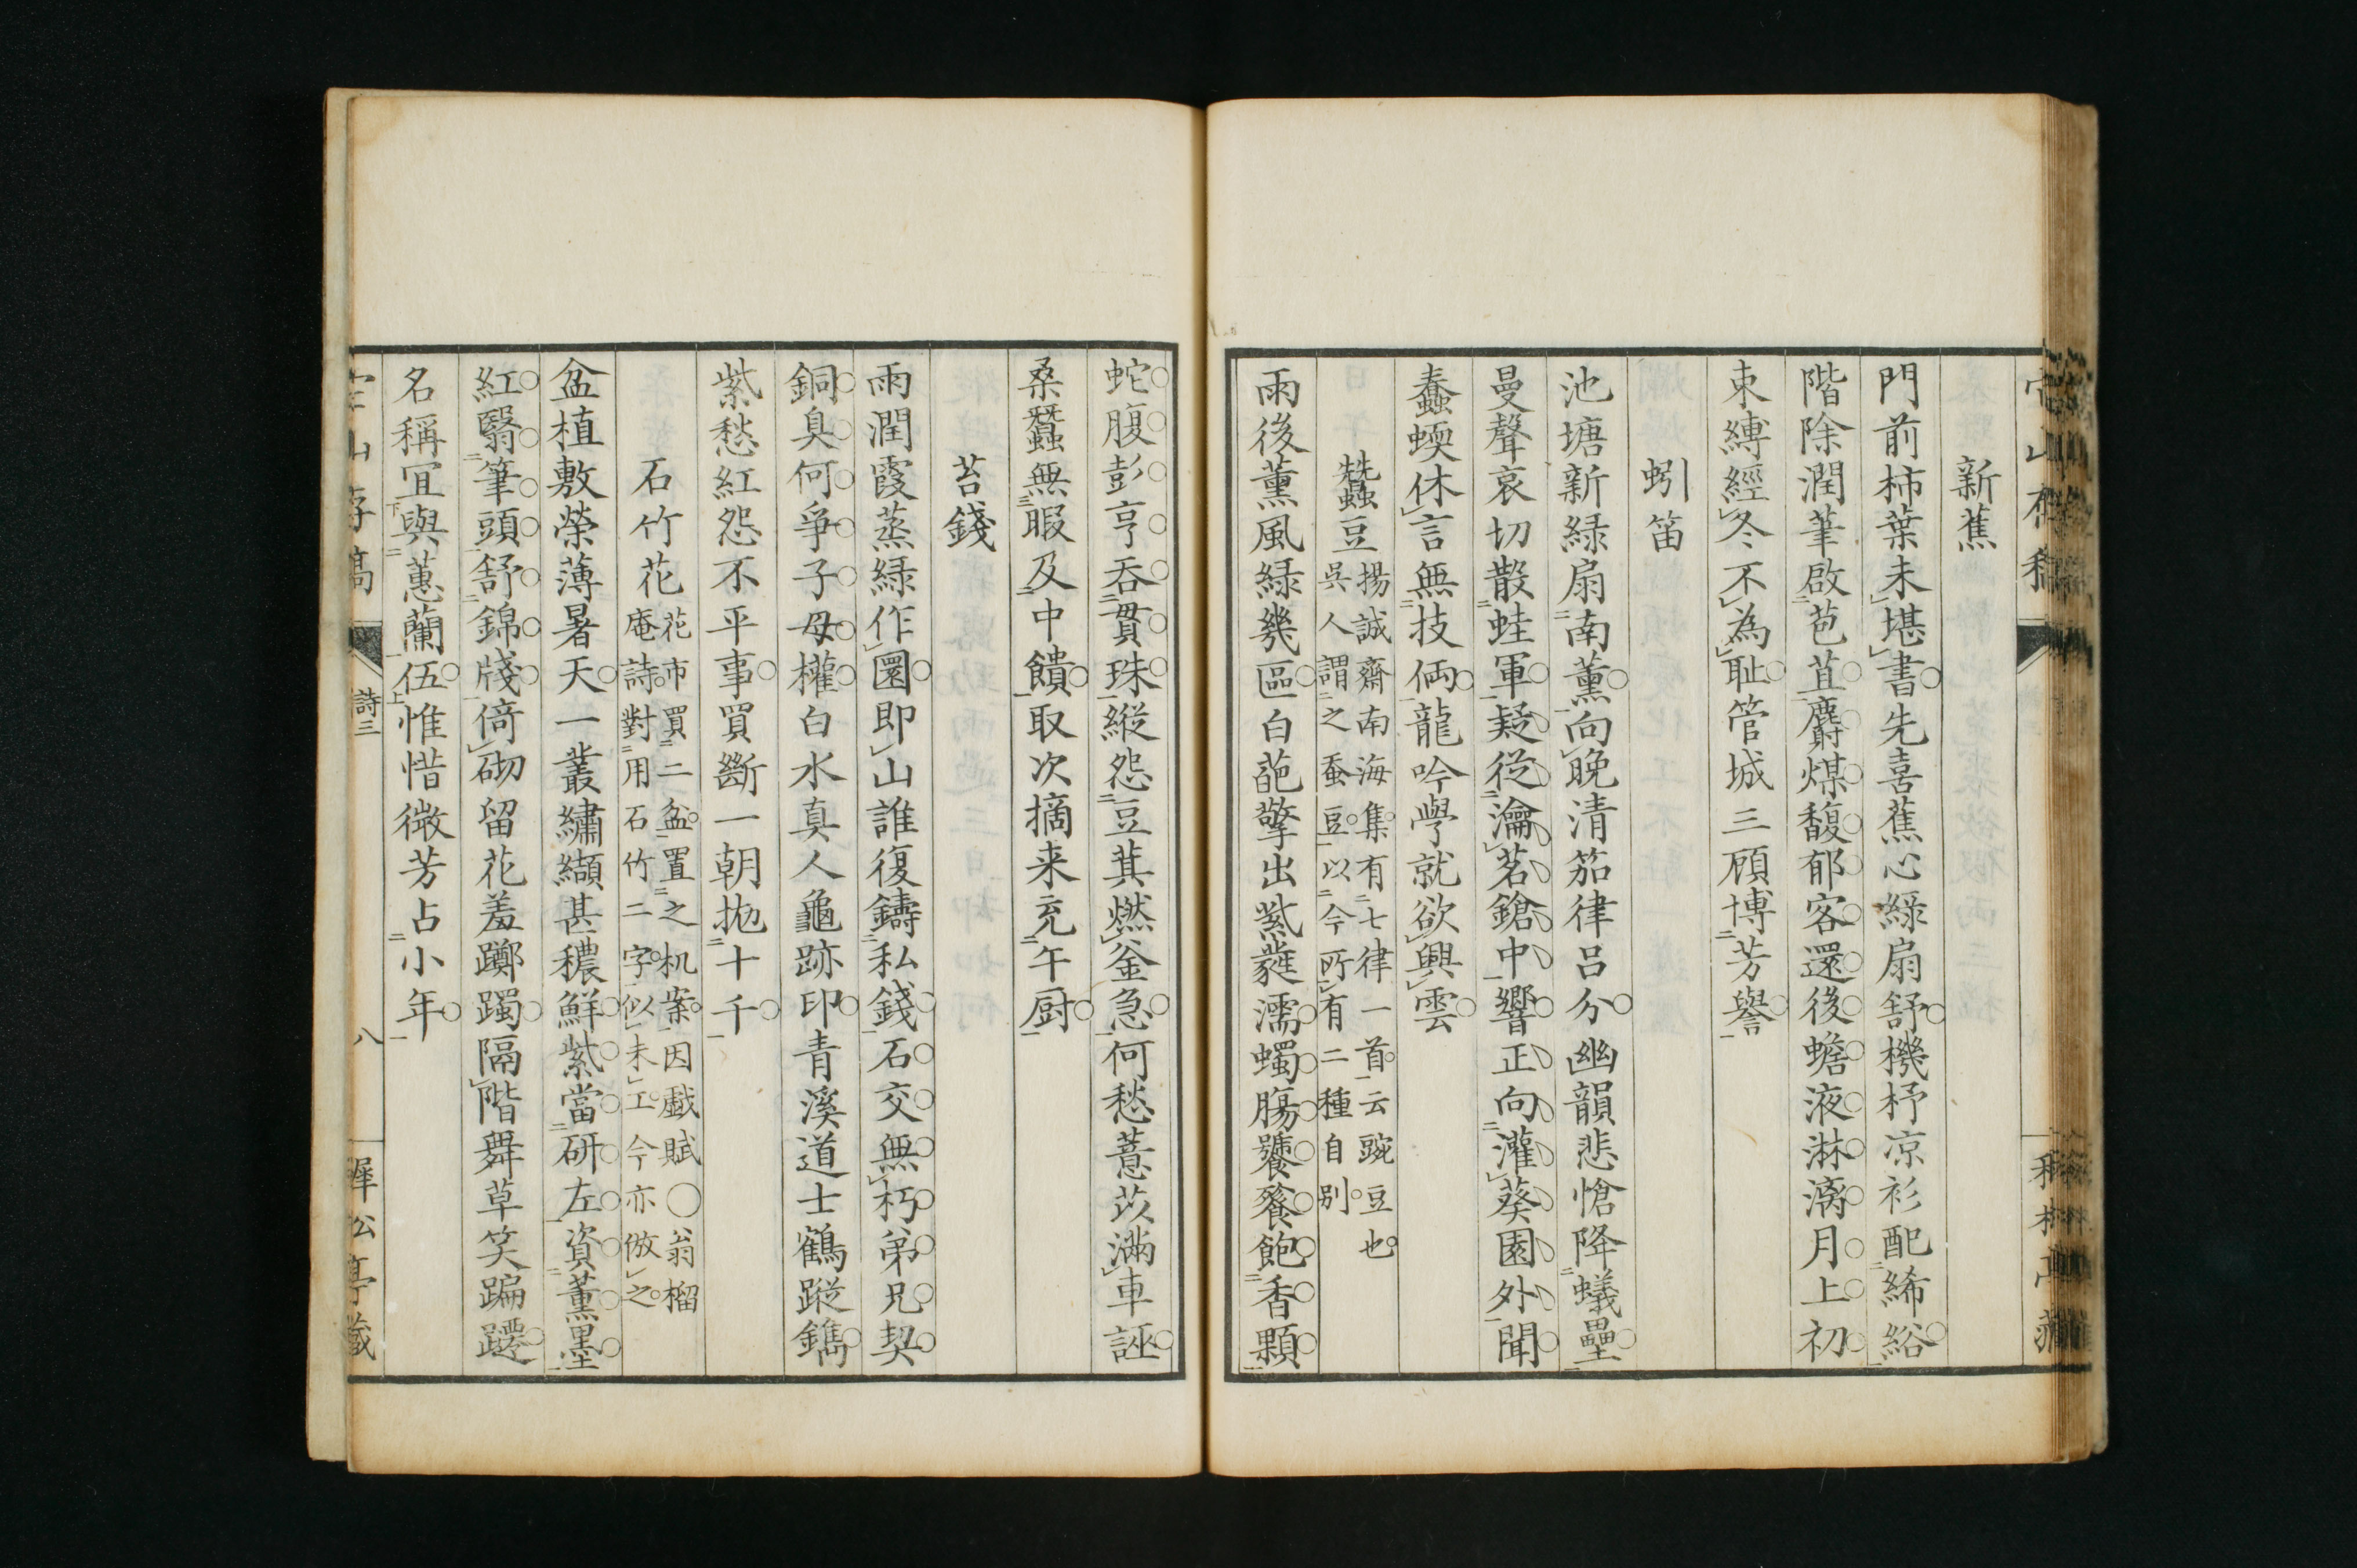 新蕉
門前柿葉未堪書先喜蕉心緑扇舒機杼凉衫配絺綌
階除潤筆啟苞苴麝煤馥郁客還後蟾液淋漓月上初
束縛經冬不為恥管城三顧博芳譽
蚓笛
池塘新緑扇南薰向晚清笳律呂分幽韻悲愴降蟻壘
曼聲哀切散蛙軍疑從瀹茗鎗中響正向灌葵園外聞
蠢蝡休言無技倆龍吟學就欲興雲
蠶豆 揚誠齋南海集有七律一首云豌豆也
吳人謂之蚕豆以今所有二種自別
雨後薰風緑幾區白葩擎出紫蕤濡蠋腸饕餮飽香顆
蛇腹彭亨吞貫珠縱怨豆萁燃釜急何愁薏苡滿車誣
桑蠶無暇及中饋取次摘来充午厨
苔錢
雨潤霞蒸緑作圜即山誰復鑄私錢石交無朽弟兄契
銅臭何爭子母權白水真人龜跡印青溪道士鶴蹤鐫
紫愁紅怨不平事買斷一朝拋十千
石竹花 花市買二盆置之机案因戲賦○翁榴
庵詩對用石竹二字似未工今亦倣之
盆植敷榮薄暑天一叢繡纈甚穠鮮紫當研左資薰墨
紅翳筆頭舒錦牋倚砌留花羞躑躅隔階舞草笑蹁躚
名稱宜與蕙蘭伍惟惜微芳占小年
詩三
八